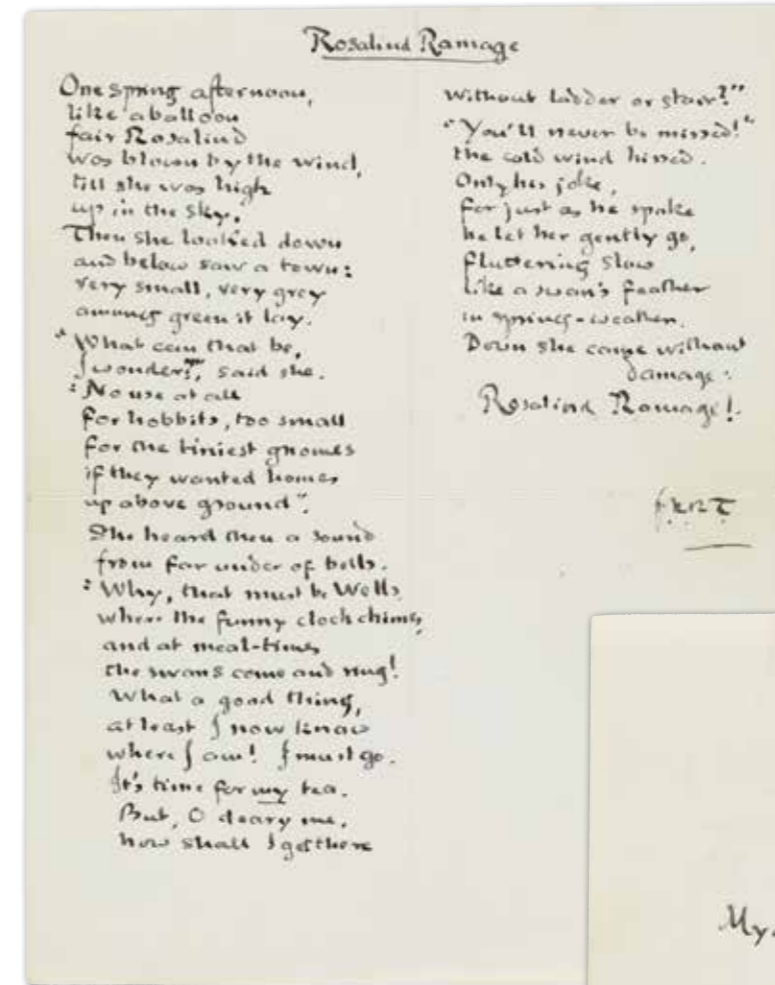 Rosalind Ramage
One spring afternoon,
like a balloon
fair Rosalind
was blown by the wind,
till she was high
up in the sky.
Then she looked down
and below saw a town:
very small, very grey
among green it lay.
"What can that be,
I wonder?", said she.
"No use at all
for hobbits, too small
for the tiniest gnomes
if they wanted homes
up above ground".
She heard then a sound
from far under of bells.
"Why, that must be Wells,
where the funny clock chimes,
and at meal-times
the swans come and ring!
What a good thing,
at least I now know
where I am! I must go.
It's time for my tea.
But, O deary me,
how shall I get there
without ladder or stair?"
"You'll never be missed!"
the cold wind hissed.
Only his joke,
for just as he spake
he let her gently go,
fluttering slow
like a swan's feather
in spring-weather.
Down she came without
damage:
Rosalind Ramage!
J.R.R.T
My